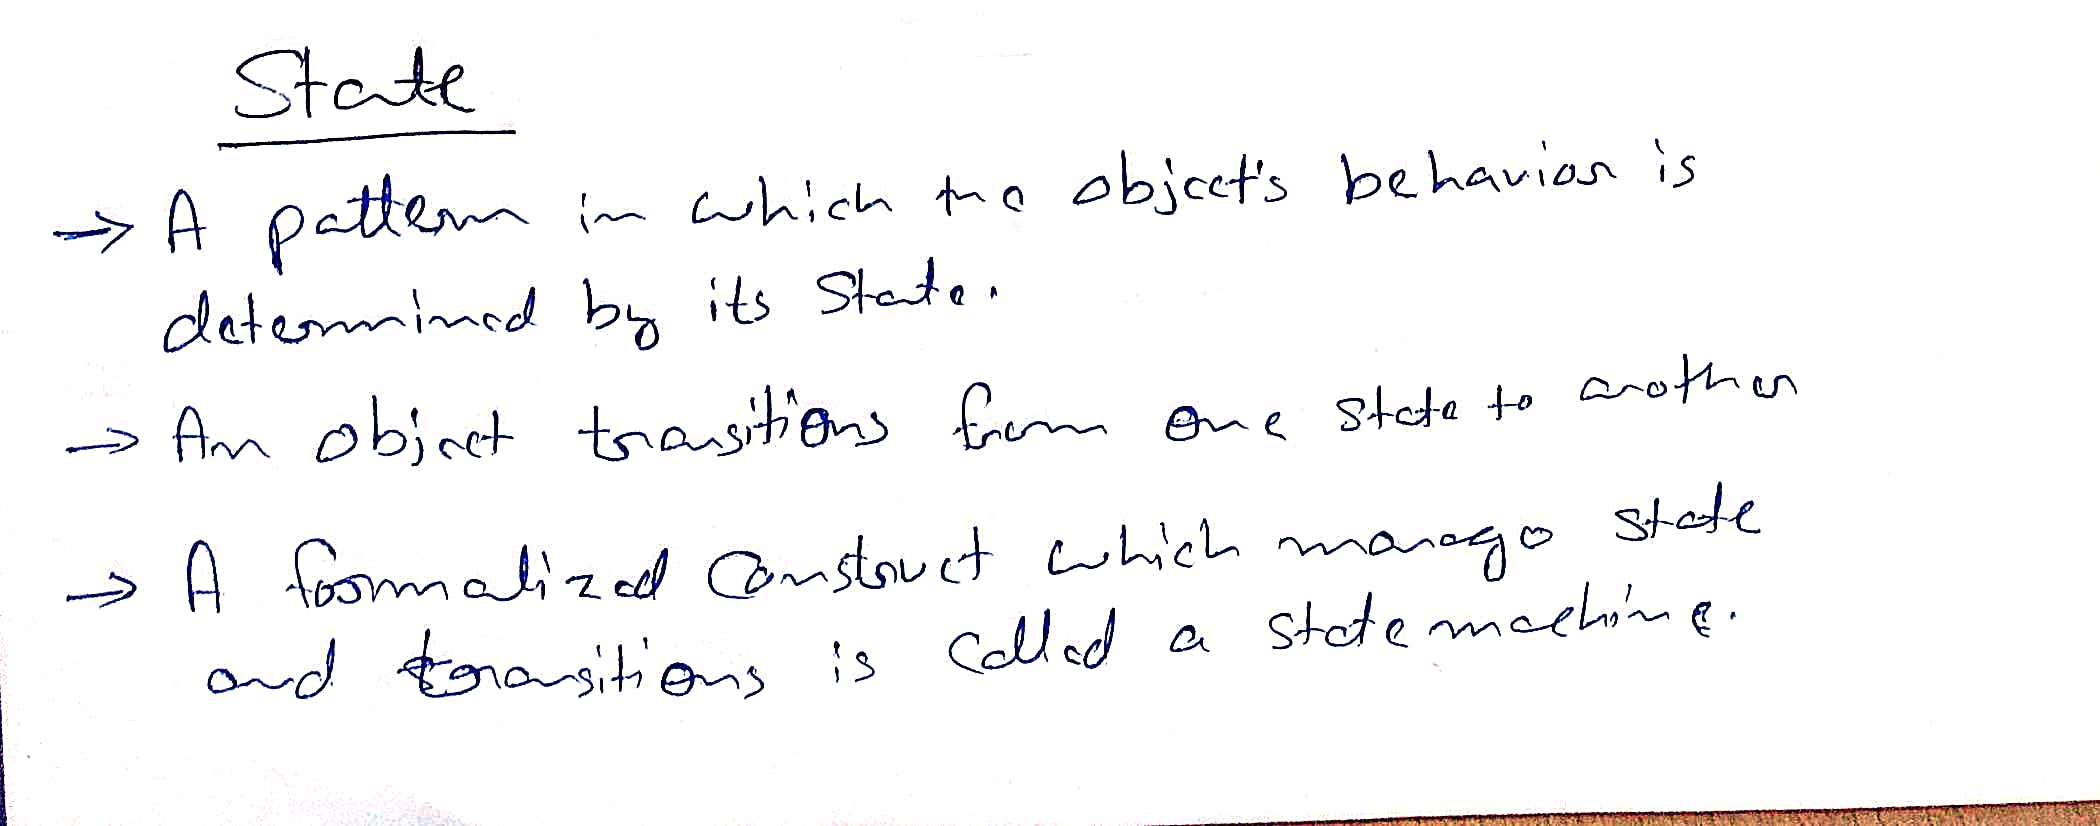 State
→ A pattern in which the object's behavior is
determined by its state.
→ An object transitions from one state to another
→ A formalized construct which manage state
and transitions is called a state machine.